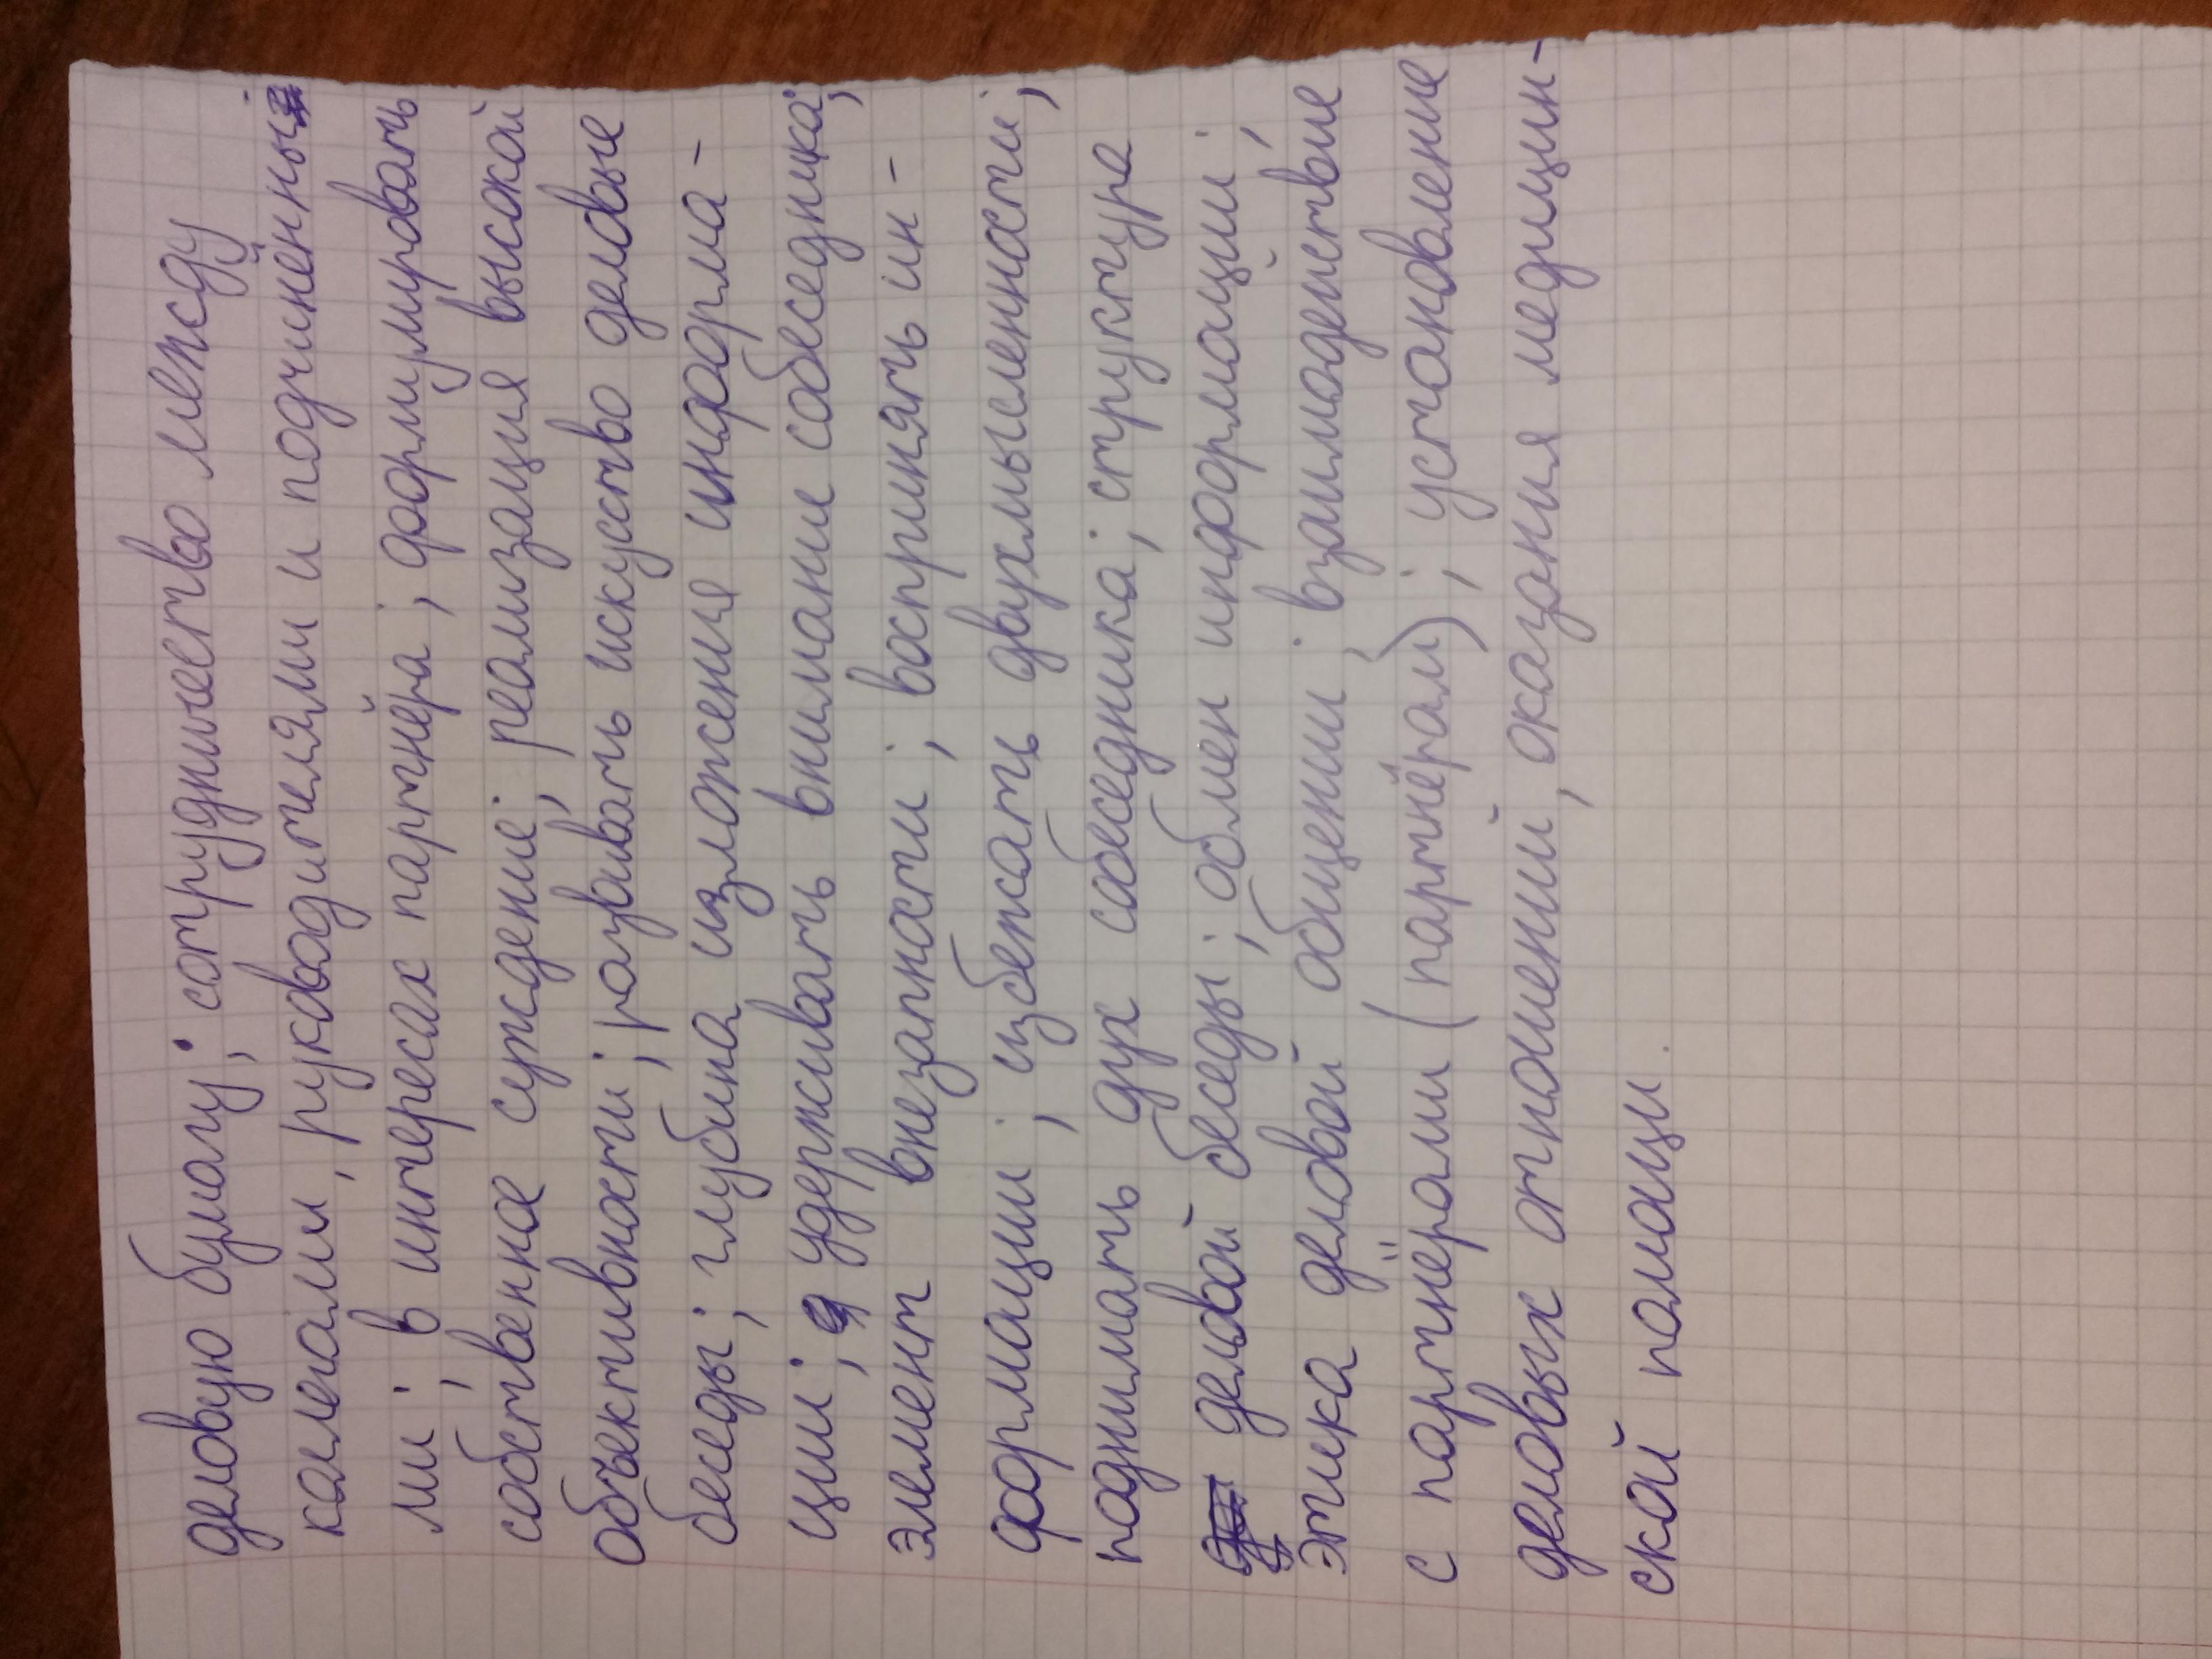 деловую бумагу; сотрудничество между
колегами, руководителями и подчинённы
ми; в интересах партнёра; формировать
собственное суждение; реализация высокой
объективности; развивать искуство деловые
беседы; глубина изложения информа-
ции; удерживать внимание собеседника;
элемент внезапности; воспринять ин-
формации; избежать двухмысленности;
поднимать дух собеседника; структура
деловой беседы; обмен информации;
этика деловой общении; взаимодействие
с партнёрами (партнёрам); установление
деловых отношений, оказания медицин-
ской помощи.